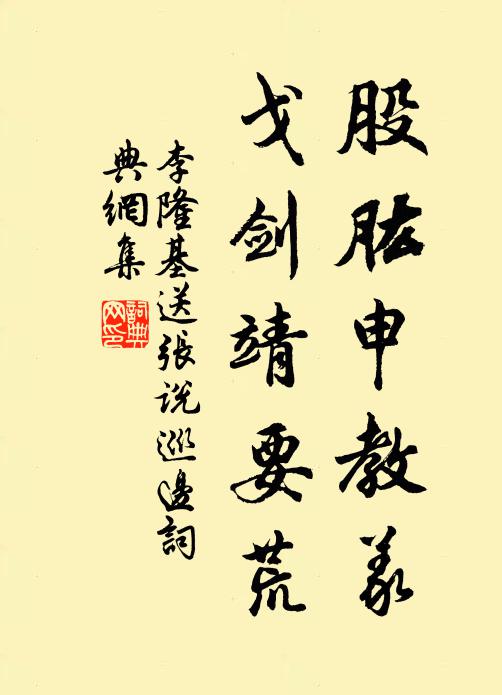 股肱申教义
戈剑靖要荒
李隆基送張説巡邊詞
典網集
詞典
网印